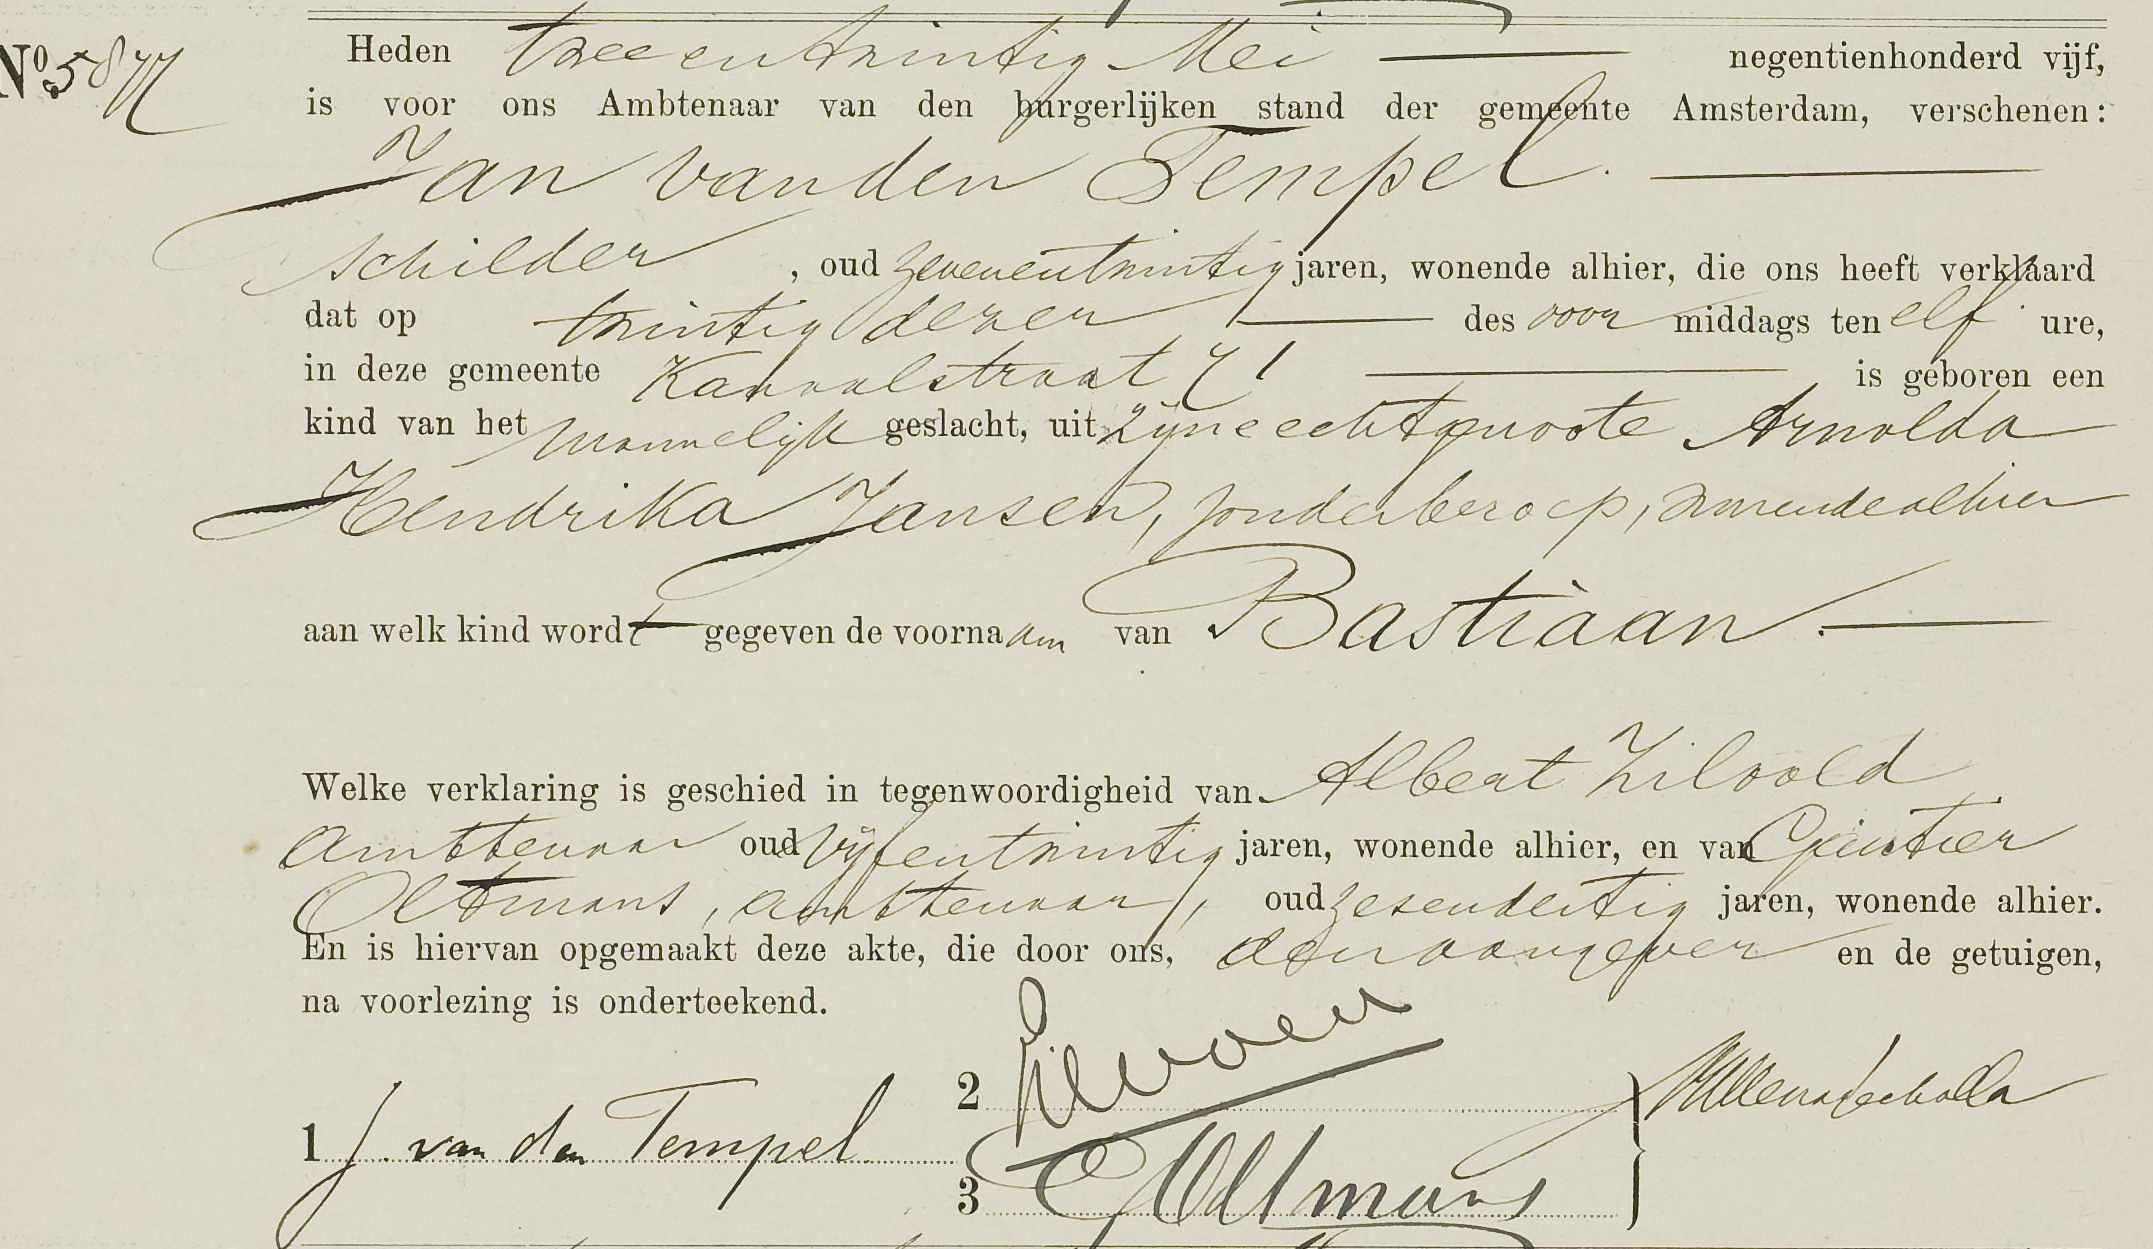 No. 5877
Heden tweeentwintig Mei negentienhonderd vijf,
is voor ons Ambtenaar van den burgerlijken stand der gemeente Amsterdam, verschenen:
Jan van den Tempel.
schilder, oud zevenentwintig jaren, wonende alhier, die ons heeft verklaard
dat op twintig dezer des voor middags ten elf ure,
in deze gemeente Kanaalstraat 71 is geboren een
kind van het mannelijk geslacht, uit zijne echtgenoote Arnolda
Hendrika Jansen, zonder beroep, wonende alhier
aan welk kind wordt gegeven de voornaam van Bastiaan.
Welke verklaring is geschied in tegenwoordigheid van Albert Zilvold
ambtenaar oud vijfentwintig jaren, wonende alhier, en van
Oltmans, ambtenaar, oud zesendertig jaren, wonende alhier.
En is hiervan opgemaakt deze akte, die door ons, den aangever en de getuigen,
na voorlezing is onderteekend.
1 J. van den Tempel
2
3 Oltmans